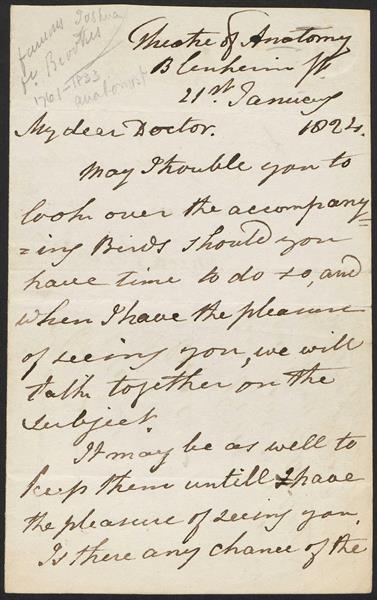 famous Joshua
Brookes
1761-1833
anatomist
Theatre of Anatomy
Blenheim St.
21st January
My dear Doctor. 1824.
May I trouble you to
look over the accompany
=ing Birds should you
have time to do so, and
when I have the pleasure
of seeing you, we will
talk together on the
subject.
It may be as well to
keep them untill I have
the pleasure of seeing you.
Is there any chance of the